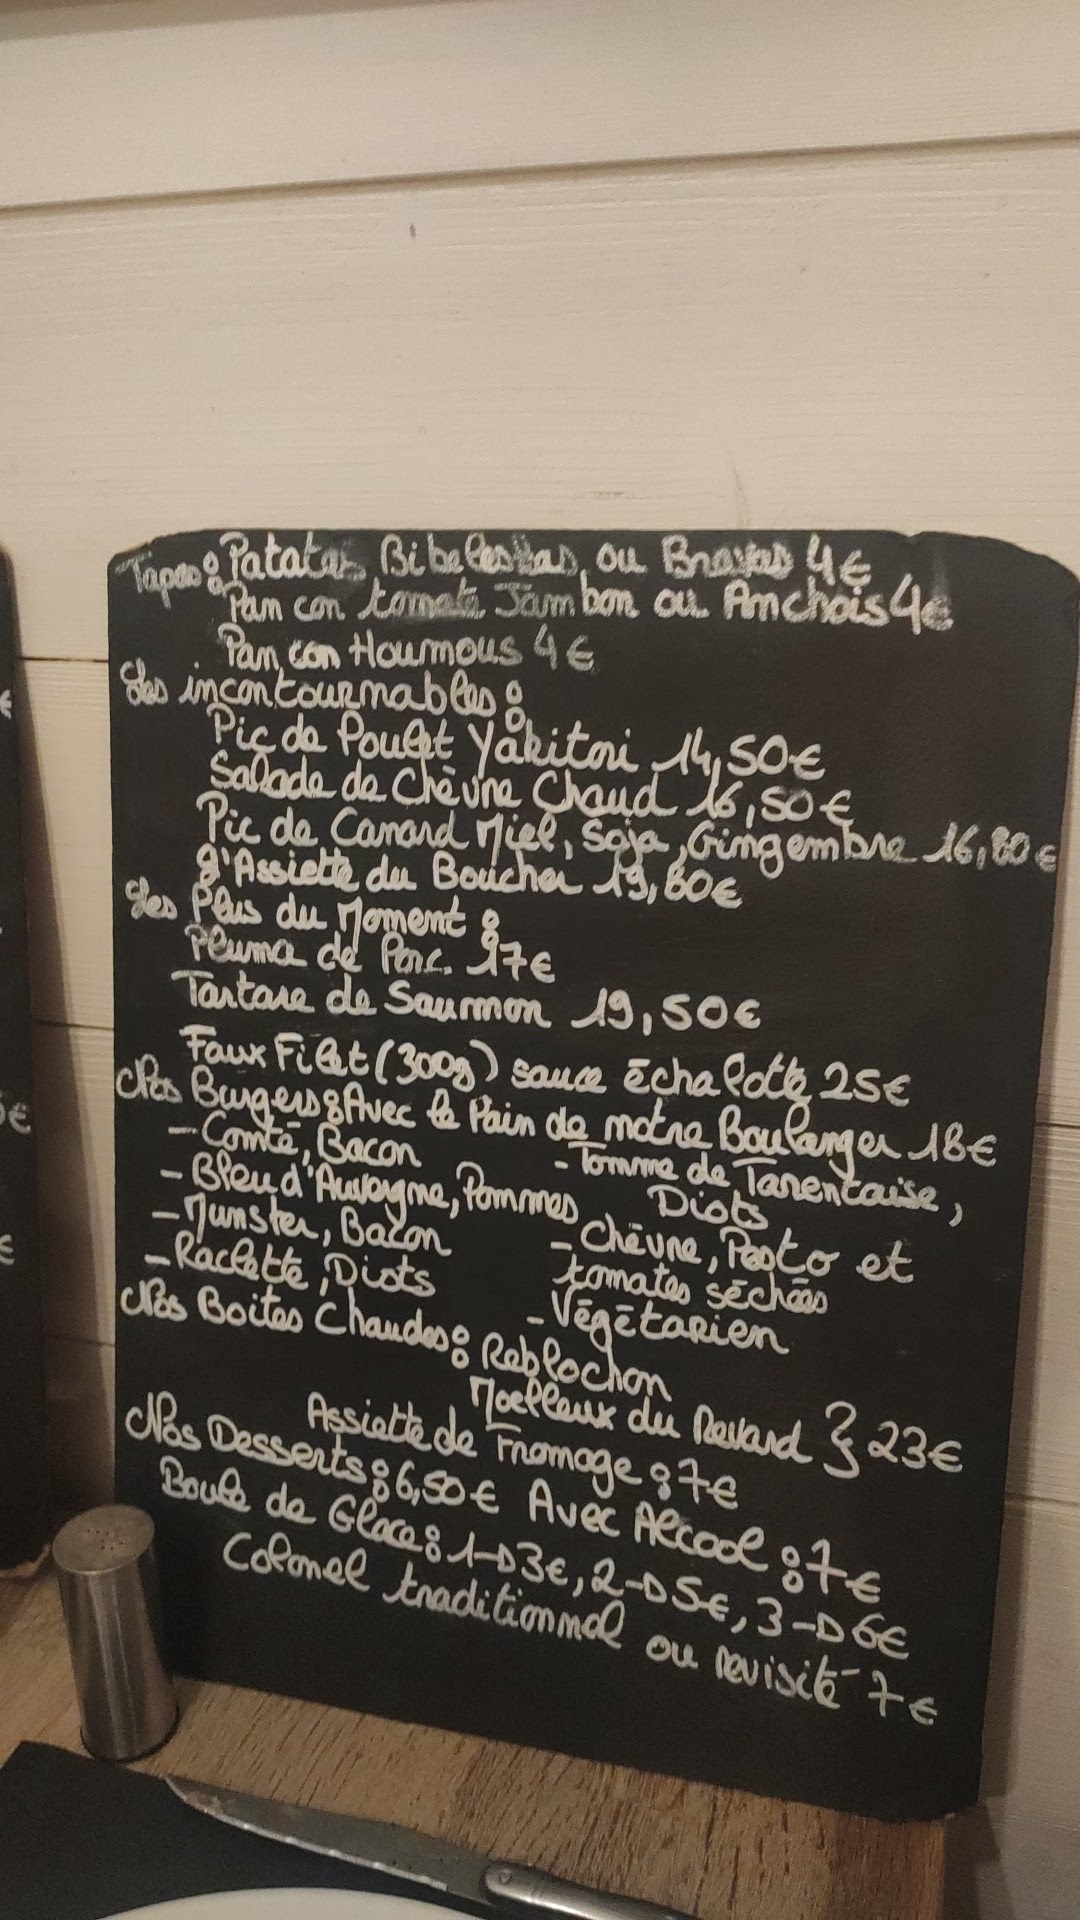 Tapas : Patatas Bibeleskas ou Bravas 4€
Pan con tomate Jambon ou Anchois 4€
Pan con Houmous 4€
Les incontournables :
Pic de Poulet Yakitori 14,50€
Salade de Chèvre Chaud 16,50€
Pic de Canard Miel, Soja, Gingembre 16,80€
L'Assiette du Boucher 19,80€
Les Plus du Moment :
Pluma de Porc. 17€
Tartare de Saumon 19,50€
Faux Filet (300g) sauce échalotte 25€
Nos Burgers : Avec le Pain de notre Boulanger 18€
- Comté, Bacon
- Bleu d'Auvergne, Pommes
- Munster, Bacon
- Raclette, Diots
- Tomme de Tarentaise,
Diots
- Chèvre, Pesto et
tomates séchées
- Végétarien
Nos Boites Chaudes : Reblochon
Moelleux du Revard } 23€
Assiette de Fromage : 7€
Nos Desserts : 6,50€ Avec Alcool : 7€
Boule de Glace : 1→3€, 2→5€, 3→6€
Colonel traditionnel ou revisité 7€